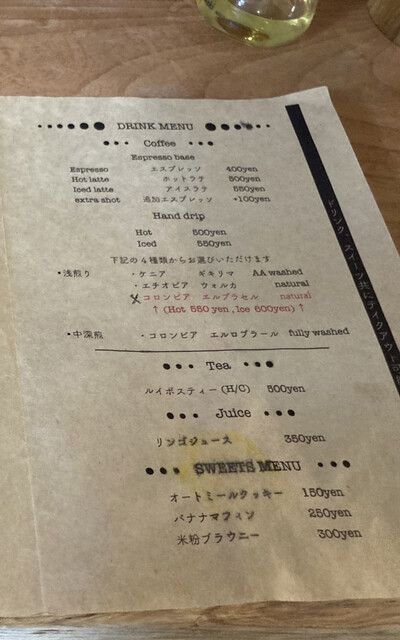 DRINK MENU
Coffee
Espresso base
Espresso エスプレッソ 400yen
Hot latte ホットラテ 500yen
Iced latte アイスラテ 550yen
extra shot 追加エスプレッソ +100yen
Hand drip
Hot 500yen
Iced 550yen
下記の4種類からお選びいただけます
・浅煎り ・ケニア ギキリマ AA washed
・エチオピア ウォルカ natural
コロンビア エルプラセル natural
↑(Hot 550yen, Ice 600yen)↑
・中深煎 ・コロンビア エルロブラール fully washed
Tea
ルイボスティー(H/C) 500yen
Juice
リンゴジュース 350yen
SWEETS MENU
オートミールクッキー 150yen
バナナマフィン 250yen
米粉ブラウニー 300yen
ドリンク、スイーツ共にテイクアウト